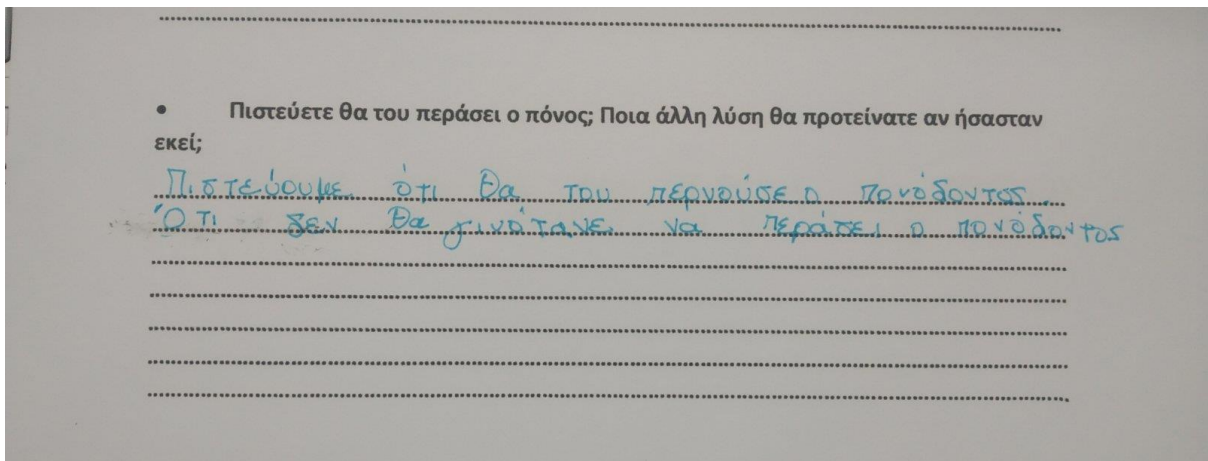 • Πιστεύετε θα του περάσει ο πόνος; Ποια άλλη λύση θα προτείνατε αν ήσασταν
εκεί;
Πιστεύουμε ότι θα του περνούσε ο πονόδοντος.
Ότι δεν θα γινότανε να περάσει ο πονόδοντος